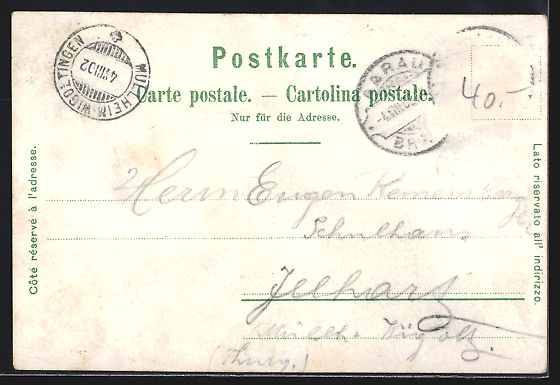 Postkarte.
Carte postale. — Cartolina postale.
Nur für die Adresse.
MÜLLHEIM-WIGOLTINGEN
4 VIII 02
BRAU
BR
40.-
Côté réservé à l'adresse.
Lato riservato all' indirizzo.
Herrn Eugen
Schulhaus
Illhart
Müllh. Wigolt.
(Thurg.)